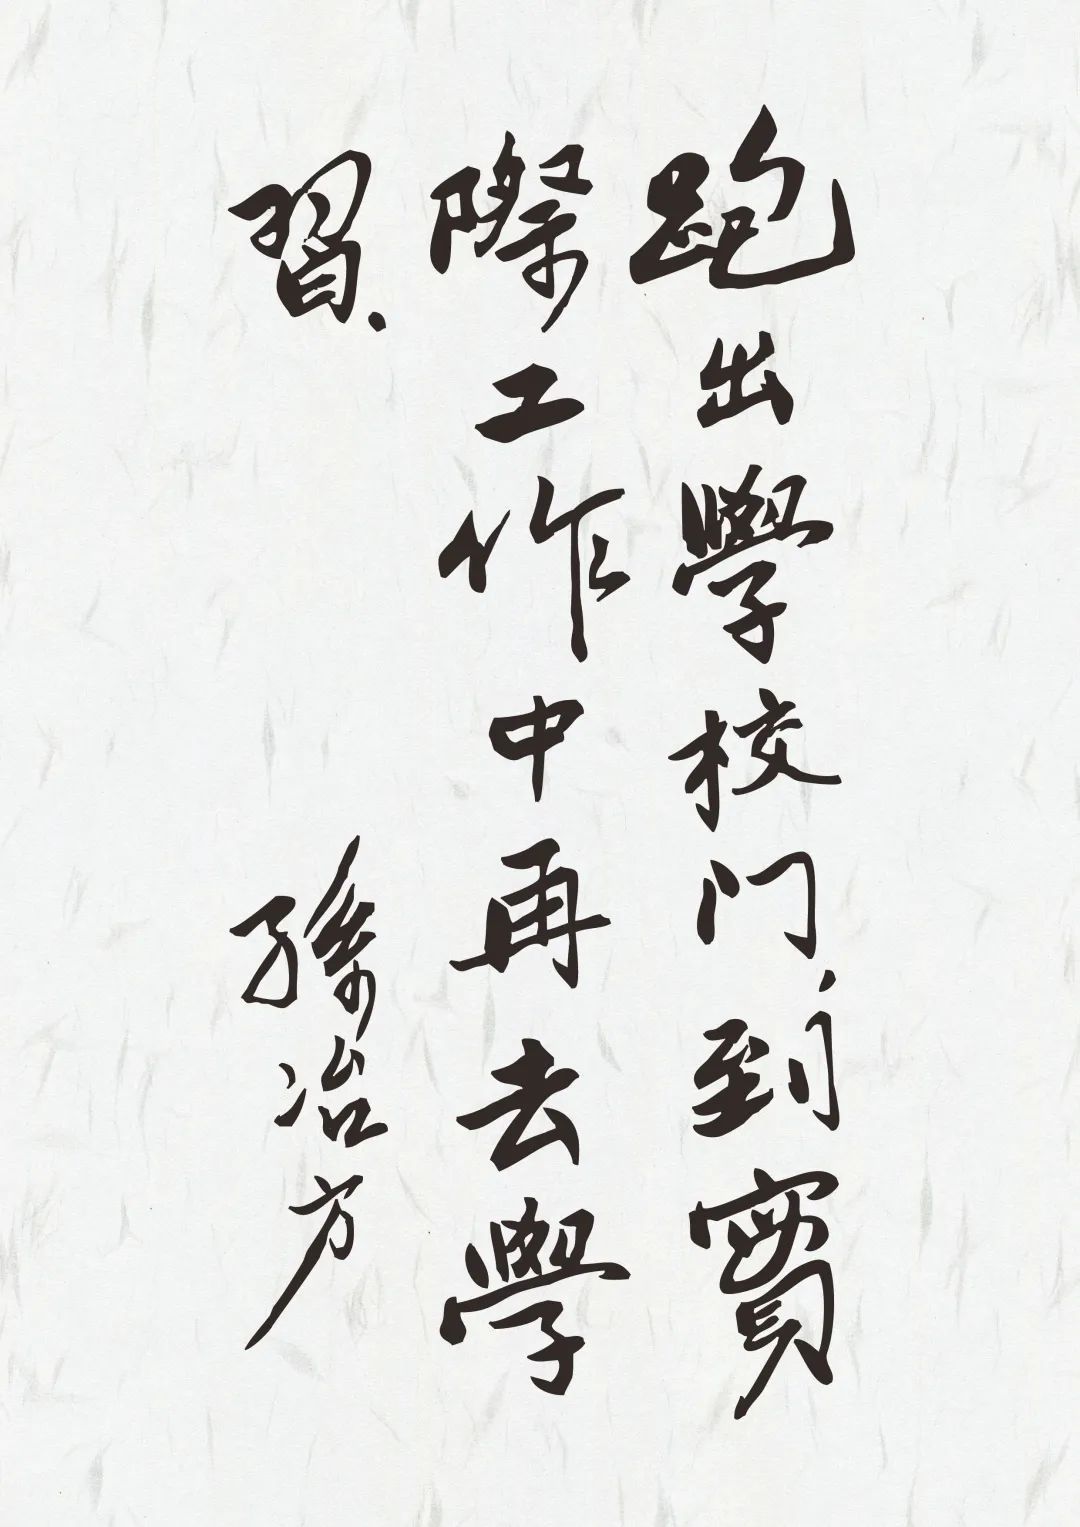 跑出學校门，到實
際工作中再去學
習.
孫冶方